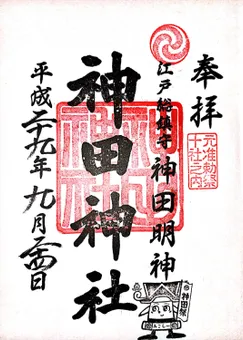 奉拝
元准勅祭
十社之内
江戸総鎮守
神田明神
神田神社
平成二十九年九月二十四日
神田祭